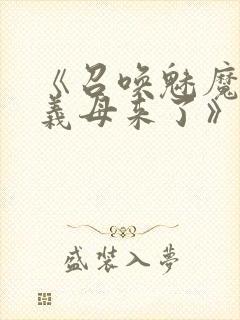 《召唤魅魔
義母来了》
盛装入夢